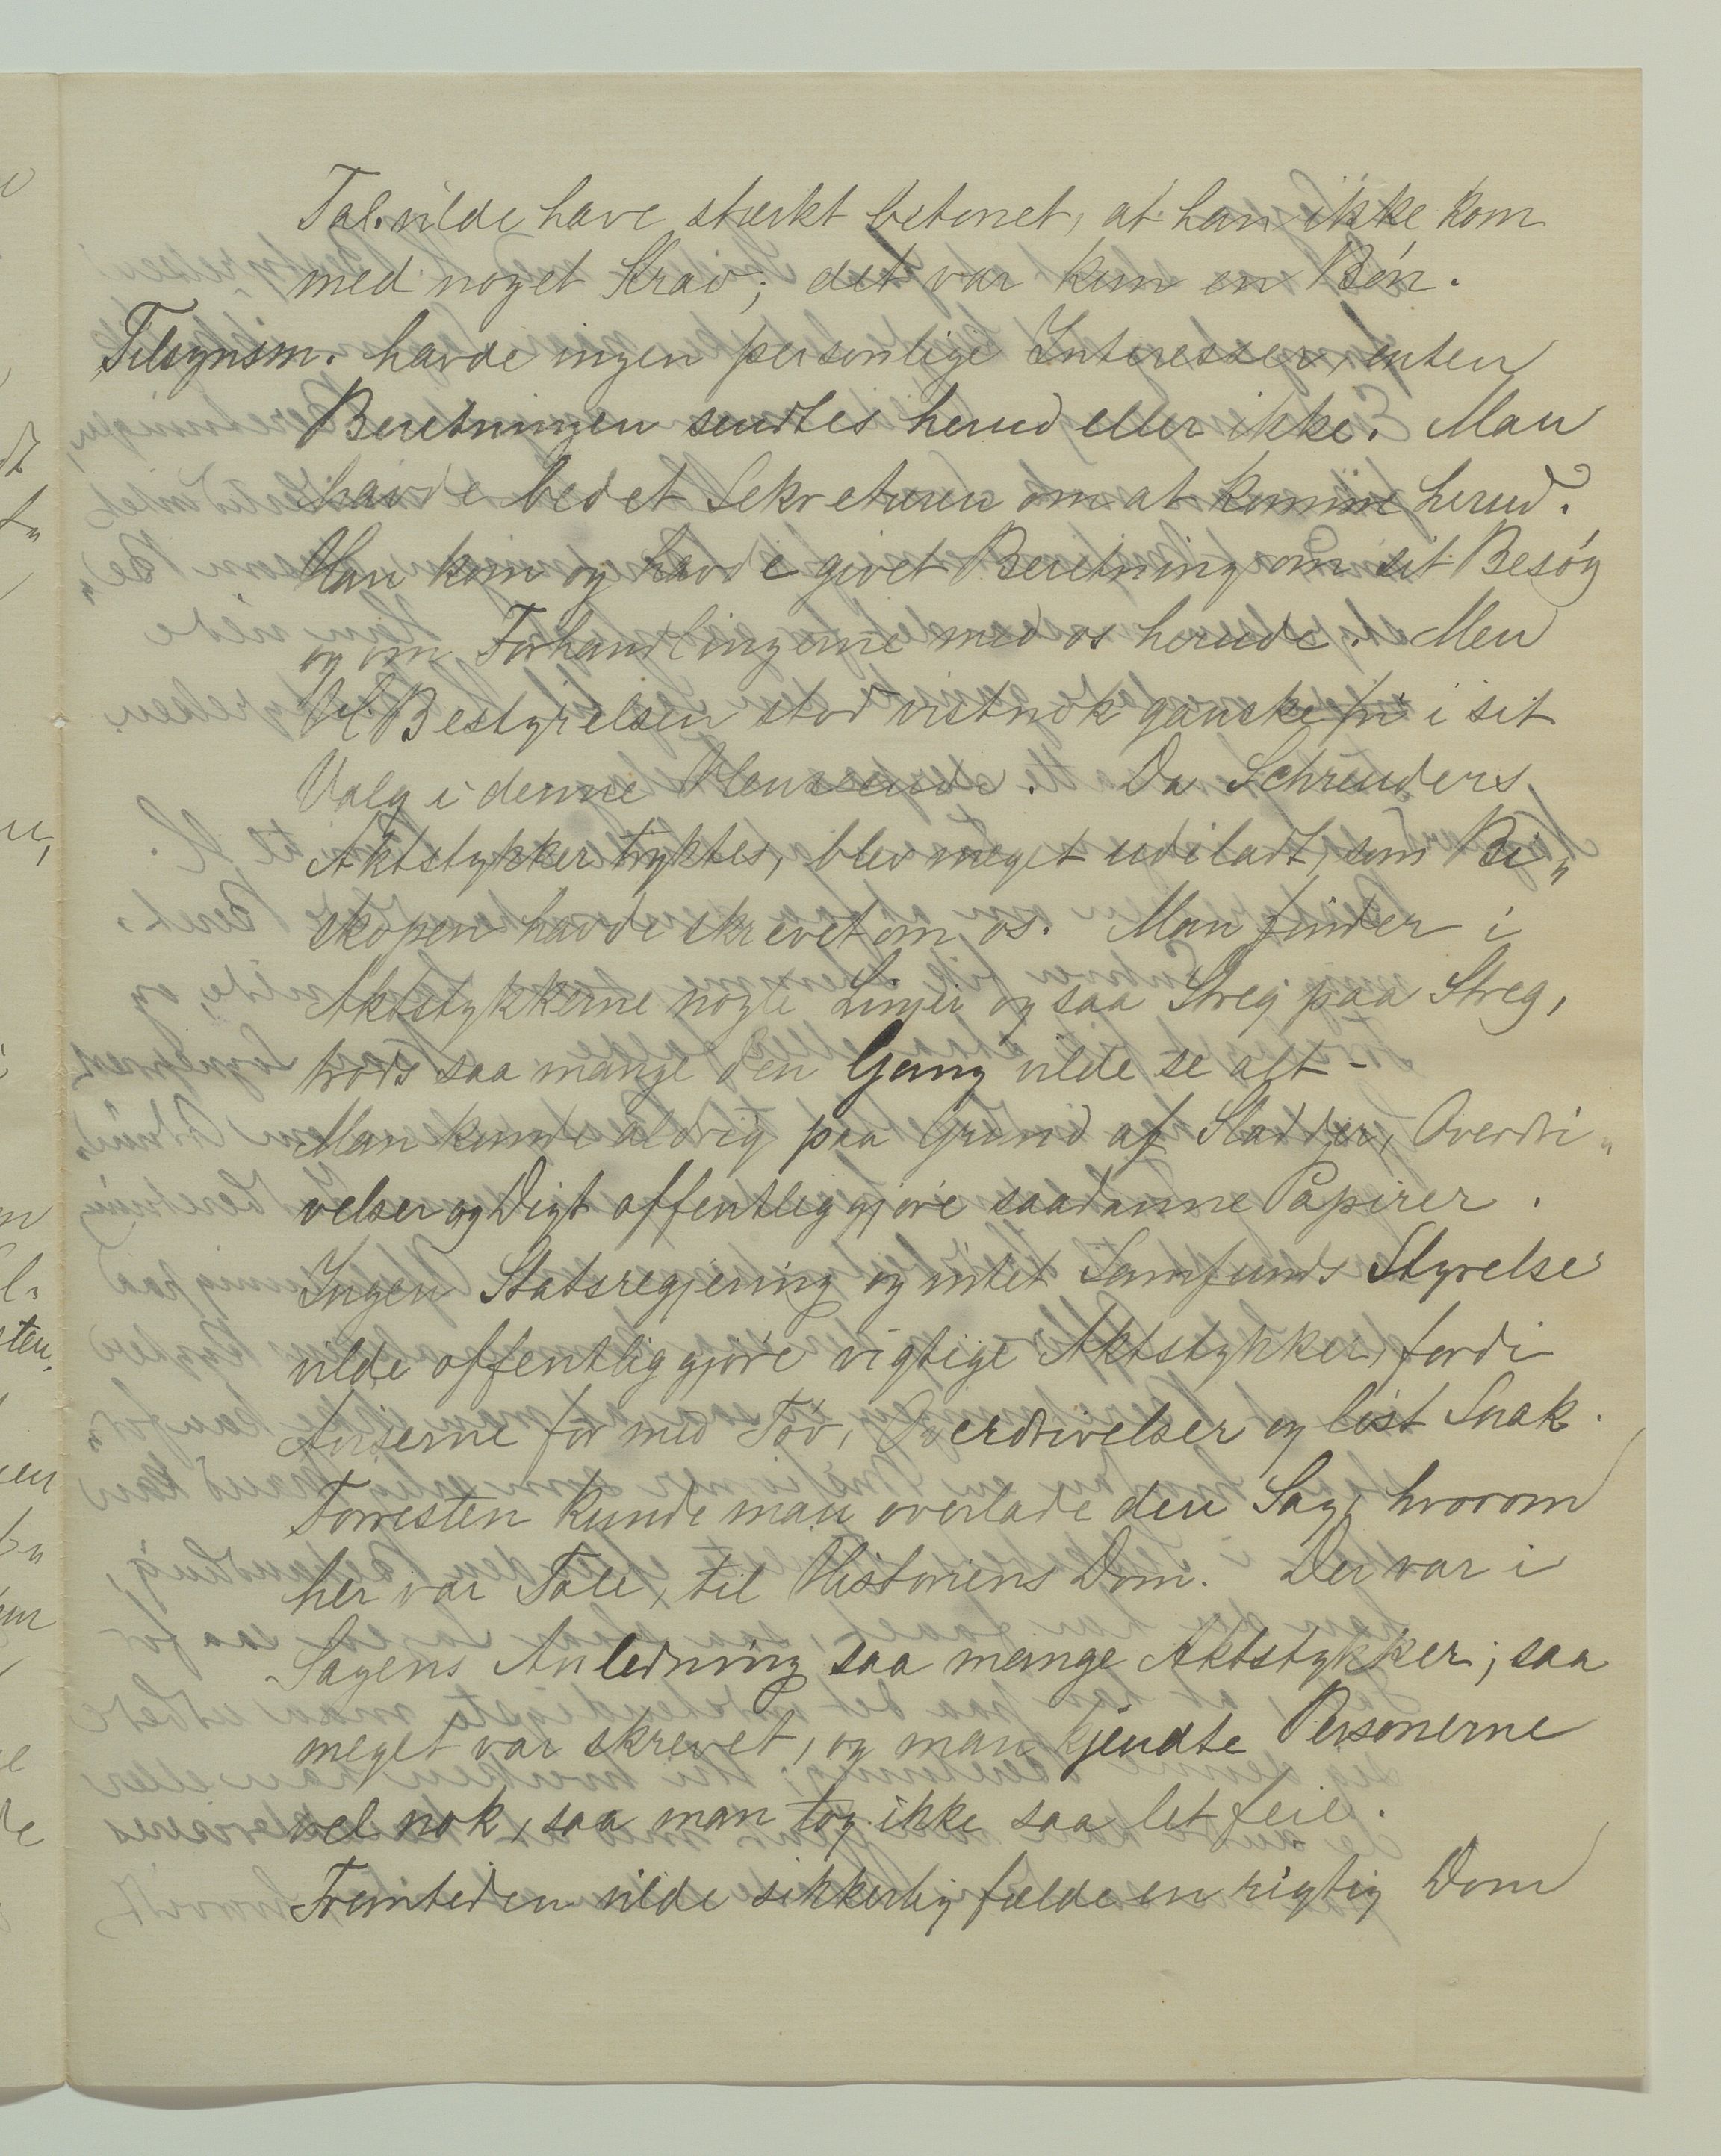 Tal. vilde have stærkt betonet, at han ikke kom
med noget Krav; det var kun en Bøn.
Tilsynsm. havde ingen personlige Interesser, enten
Beretningen sendtes herud eller ikke. Man
havde bedet Sekretæren om at komme herud.
Han kom og havde givet Beretning om sit Besøg
og om Forhandlingerne med os herude. Men
H Bestyrelsen stod vistnok ganske fri i sit
Valg i denne Henseende. Da Schreuders
Aktstykker tryktes, blev meget udeladt, som Bi„
skopen havde skrevet om os. Man finder i
Aktstykkerne nogle Linjer og saa Streg paa Streg,
trods saa mange den Gang vilde se alt-
Man kunde aldrig paa Grund af Sladder, Overdri„
velser og Digt offentliggjøre saadanne Papirer.
Ingen Statsregjering og intet Samfunds Styrelse
vilde offentliggjøre vigtige Aktstykker, fordi
Aviserne for med Töv, Overdrivelser og löst Snak.
Forresten kunde man overlade den Sag, hvorom
her var Tale, til Historiens Dom. Der var i
Sagens Anledning saa mange Aktstykker; saa
meget var skrevet, og man kjendte Personerne
vel nok, saa man tog ikke saa let feil.
Fremtiden vilde sikkerlig fælde en rigtig Dom